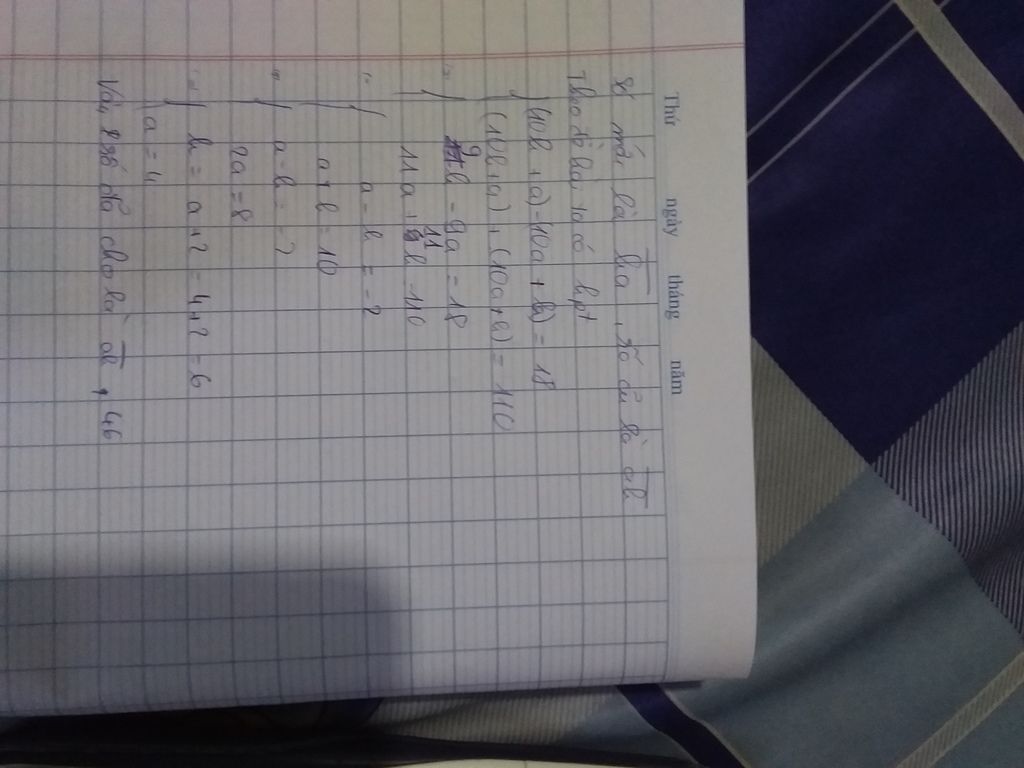 Thứ ngày tháng năm
Số mới là ba, số cũ là ab
Theo đề bài ta có hpt
(10b + a) - 10a + b) = 18
(10b + a) + (10a + b) = 110
9b - 9a = 18
11a + 11b = 110
a - b = -2
a + b = 10
a - b = -2
2a = 8
b = a + 2 = 4 + 2 = 6
a = 4
Vậy số đã cho là ab, 46